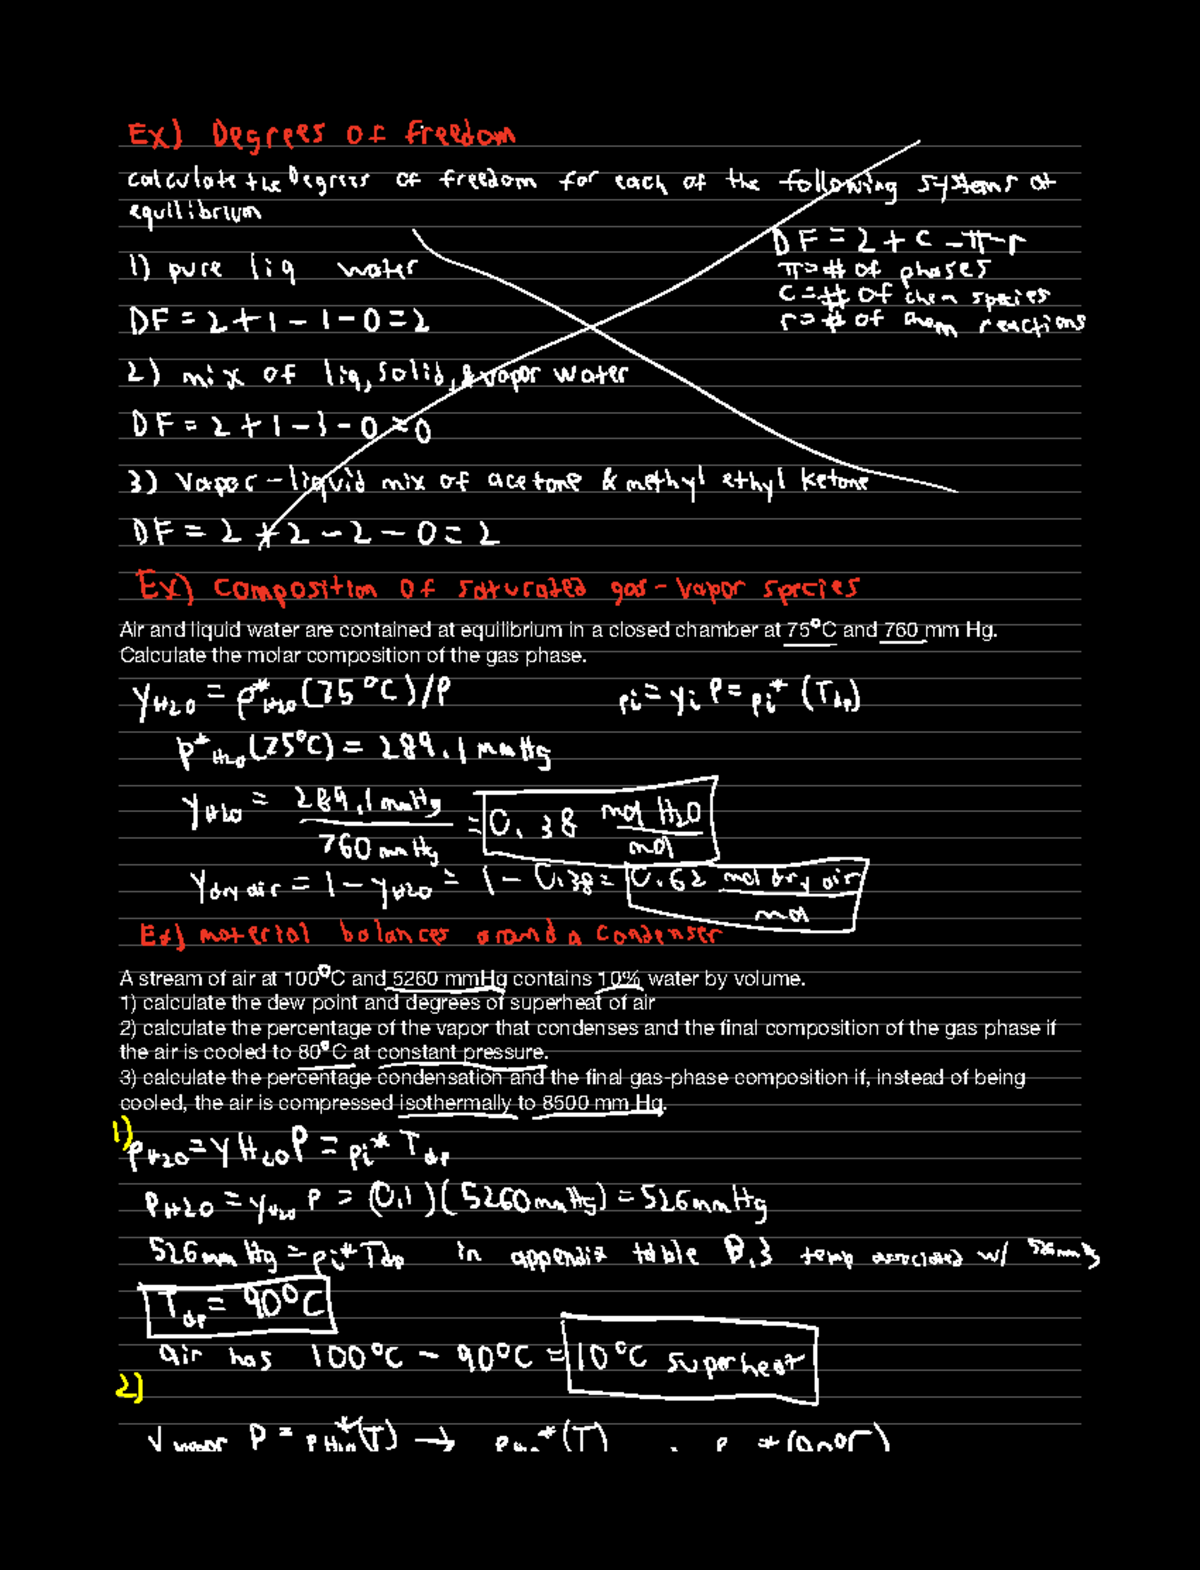 Ex) Degrees of freedom
calculate the Degrees of freedom for each of the following systems at
equilibrium
DF = 2 + C - π - r
π = # of phases
C = # of chem species
r = # of chem reactions
1) pure liq water
DF = 2 + 1 - 1 - 0 = 2
2) mix of liq, solid, & vapor water
DF = 2 + 1 - 3 - 0 = 0
3) Vapor - liquid mix of acetone & methyl ethyl ketone
DF = 2 + 2 - 2 - 0 = 2
Ex) Composition of saturated gas - vapor species
Air and liquid water are contained at equilibrium in a closed chamber at 75°C and 760 mm Hg.
Calculate the molar composition of the gas phase.
yH2O = p*H2O (75°C)/P pi = yi P = pi* (Tdp)
p*H2O (75°C) = 289.1 mmHg
yH2O = 289.1 mmHg / 760 mmHg = 0.38 mol H2O / mol
ydry air = 1 - yH2O = 1 - 0.38 = 0.62 mol dry air / mol
Ex) material balances around a Condenser
A stream of air at 100°C and 5260 mmHg contains 10% water by volume.
1) calculate the dew point and degrees of superheat of air
2) calculate the percentage of the vapor that condenses and the final composition of the gas phase if
the air is cooled to 80°C at constant pressure.
3) calculate the percentage condensation and the final gas-phase composition if, instead of being
cooled, the air is compressed isothermally to 8500 mm Hg.
1)
PH2O = yH2O P = pi* Tdp
PH2O = yH2O P = (0.1)(5260mmHg) = 526mmHg
526mm Hg = pi* Tdp in appendix table B.3 temp associated w/ 526mmHg
Tdp = 90°C
air has 100°C - 90°C = 10°C superheat
2)
P = PH2O*(T) →